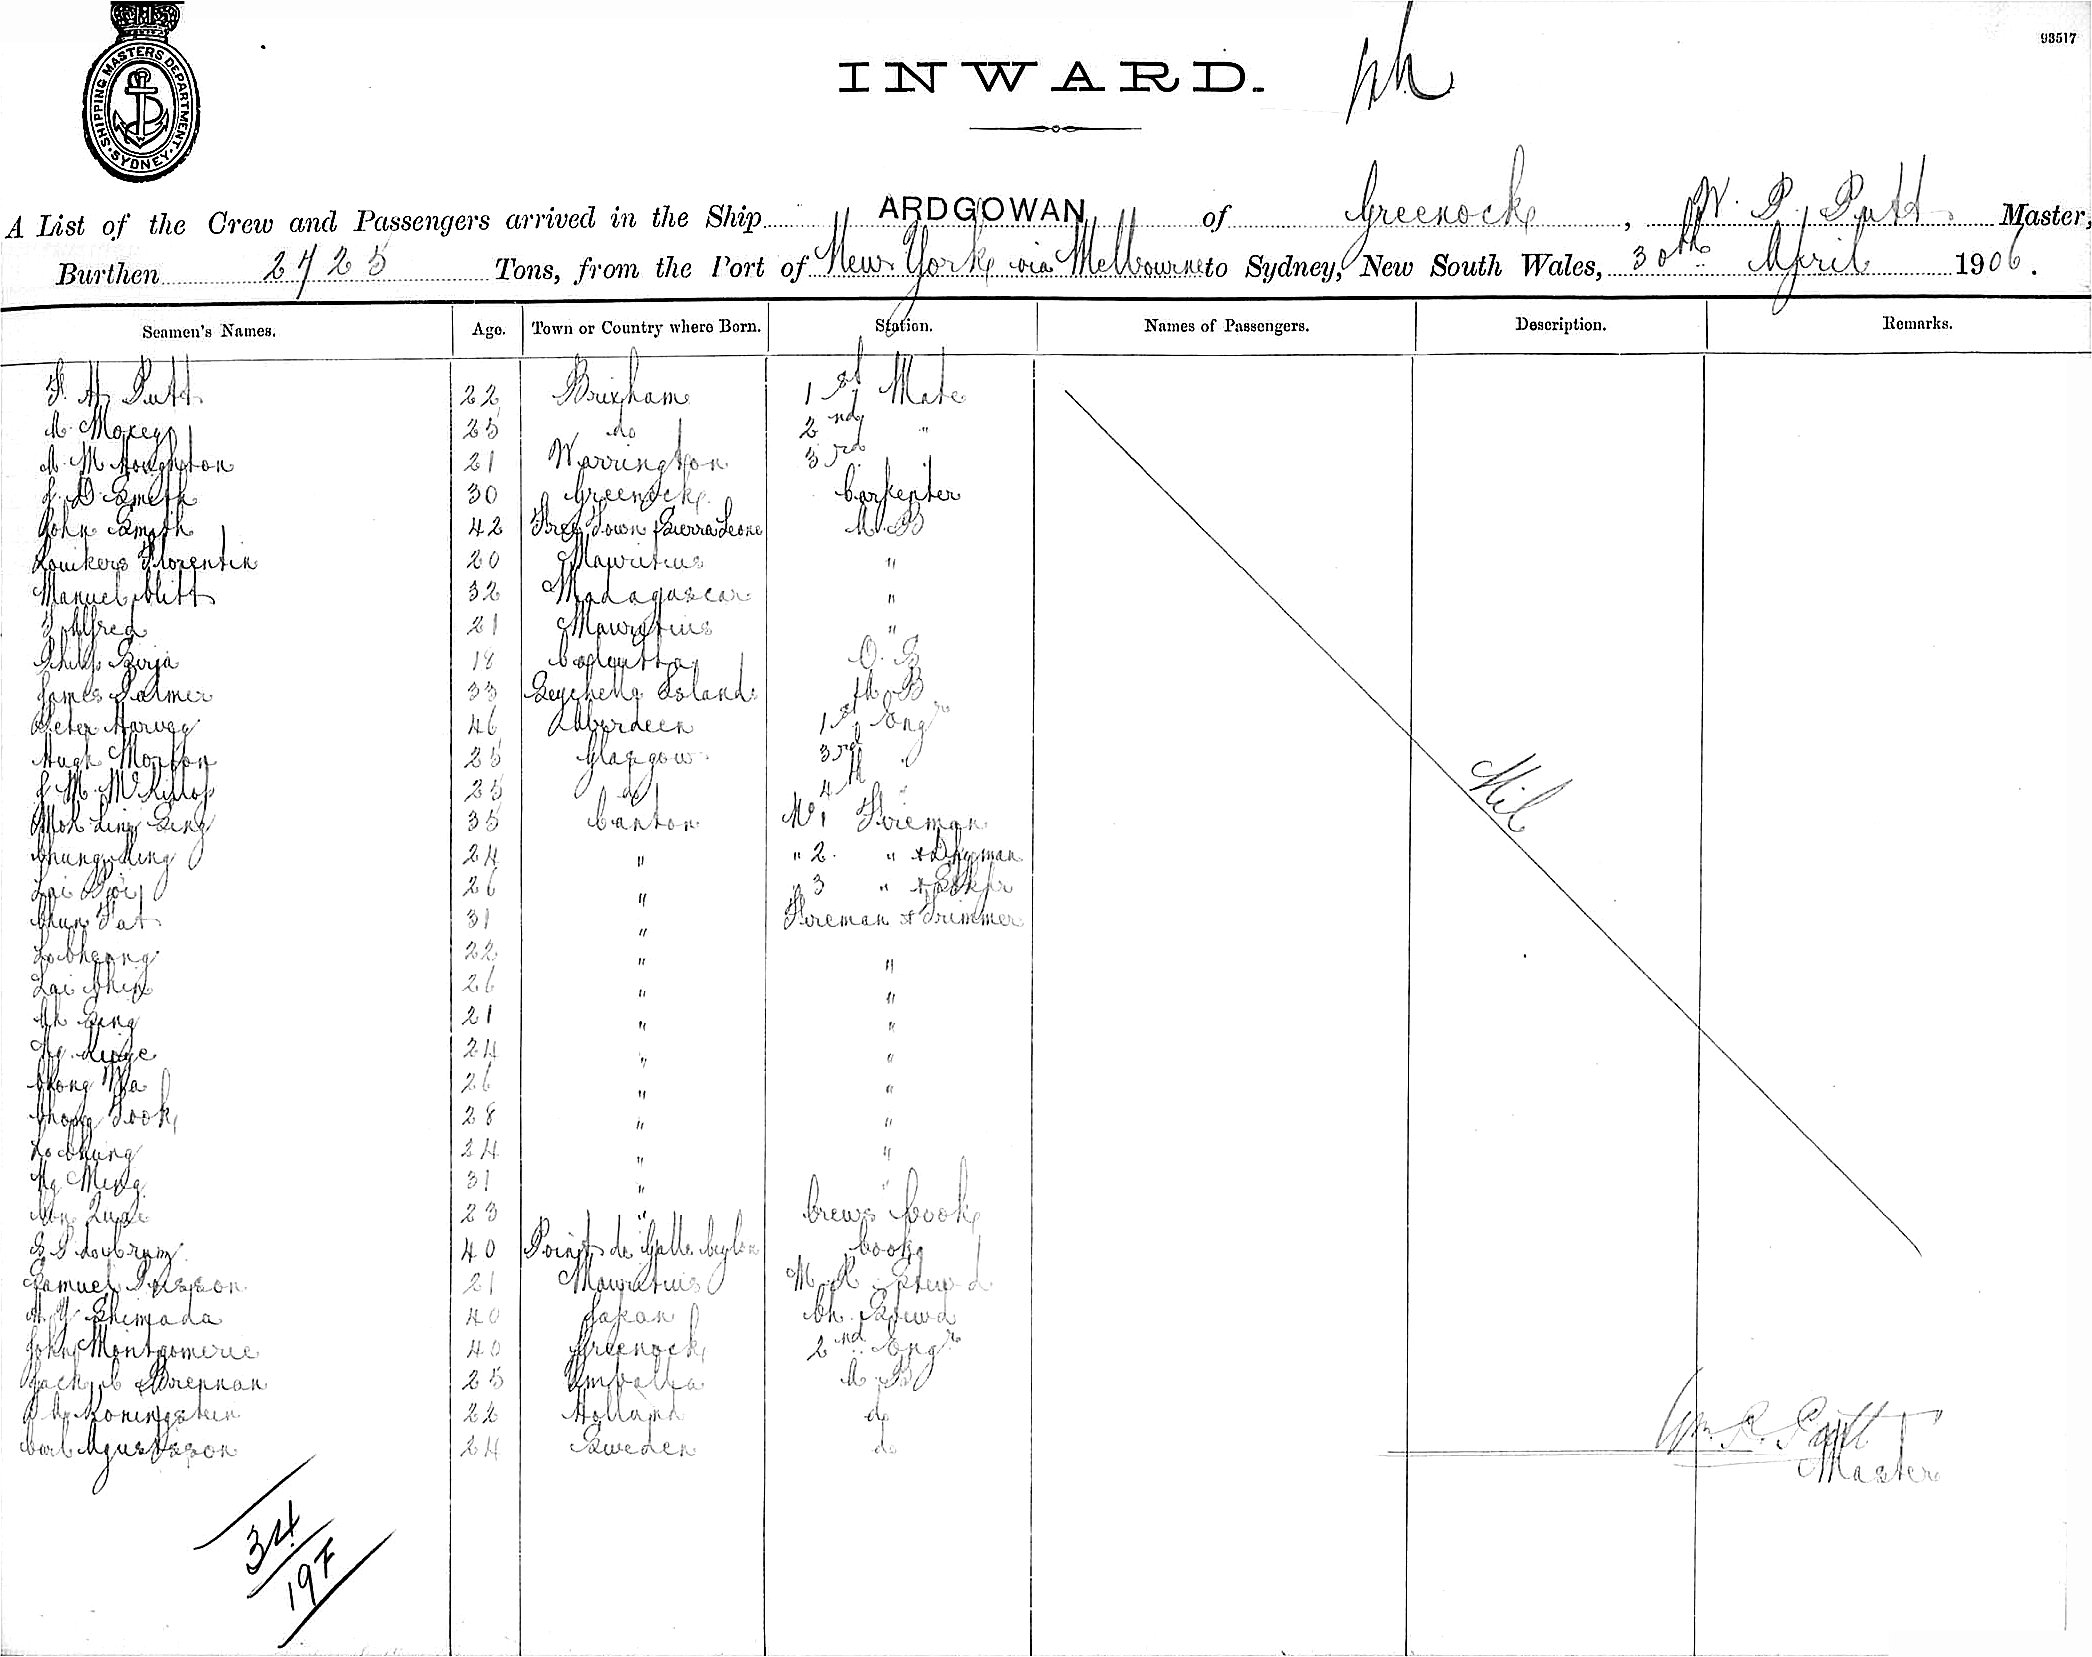 SHIPPING MASTERS DEPARTMENT. SYDNEY.
93517
INWARD.
A List of the Crew and Passengers arrived in the Ship ARDGOWAN of Greenock, W. P. Putt Master,
Burthen 2425 Tons, from the Port of New York via Melbourne to Sydney, New South Wales, 30th April 1906.
Seamen's Names. Age. Town or Country where Born. Station. Names of Passengers. Description. Remarks.
H Putt 22 Brixham 1st Mate
A. Moxey 25 do 2nd "
A. M. Houghton 21 Warrington 3rd "
J. D. Smith 30 Greenock Carpenter
John Smith 42 Free Town Sierra Leone A. B
Louikers Florentin 20 Mauritius "
Manuel 32 Madagascar "
Alfred 21 Mauritius "
Philip 18 Calcutta O. S
James Palmer 33 Seychelle Islands A. B
Peter Harvey 46 Aberdeen 1st Engr
Hugh Morton 25 Glasgow 3rd "
J. M. McKillop 25 do 4th "
Mok Ling Sing 35 Canton No 1 Fireman
Chung Ling 24 " " 2. " & Dkyman
Lai 26 " " 3 " & Stkpr
Chun Fat 31 " Fireman & Trimmer
Lo Cheong 22 " "
Lai Shin 26 " "
Ah Sing 21 " "
24 " "
Chong Wa 26 " "
Chong Fook 28 " "
Lo Chung 24 " "
Ng Ming 31 " "
23 " Crews Cook
40 Point de Galle Ceylon Cook
Samuel Poisson 21 Mauritius M. R. Stewd
Shimada 40 Japan Ch. Stewd
John Montgomerie 40 Greenock 2nd Engr
Jack C Brennan 25 Umballa A. B
Koningstein 22 Holland do
Carl Agustsson 24 Sweden do
Nil
Wm. P. Putt
Master
34
19F